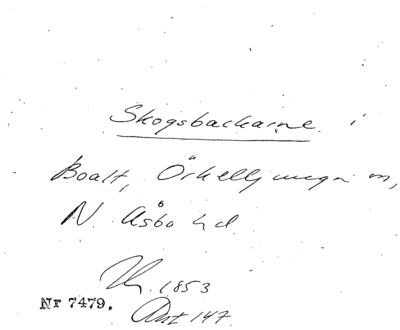 Skogsbackarne i
Boalt, Örkelljunga sn,
N. Åsbo hd
Th. 1853
Nr 7479.
Ant 147